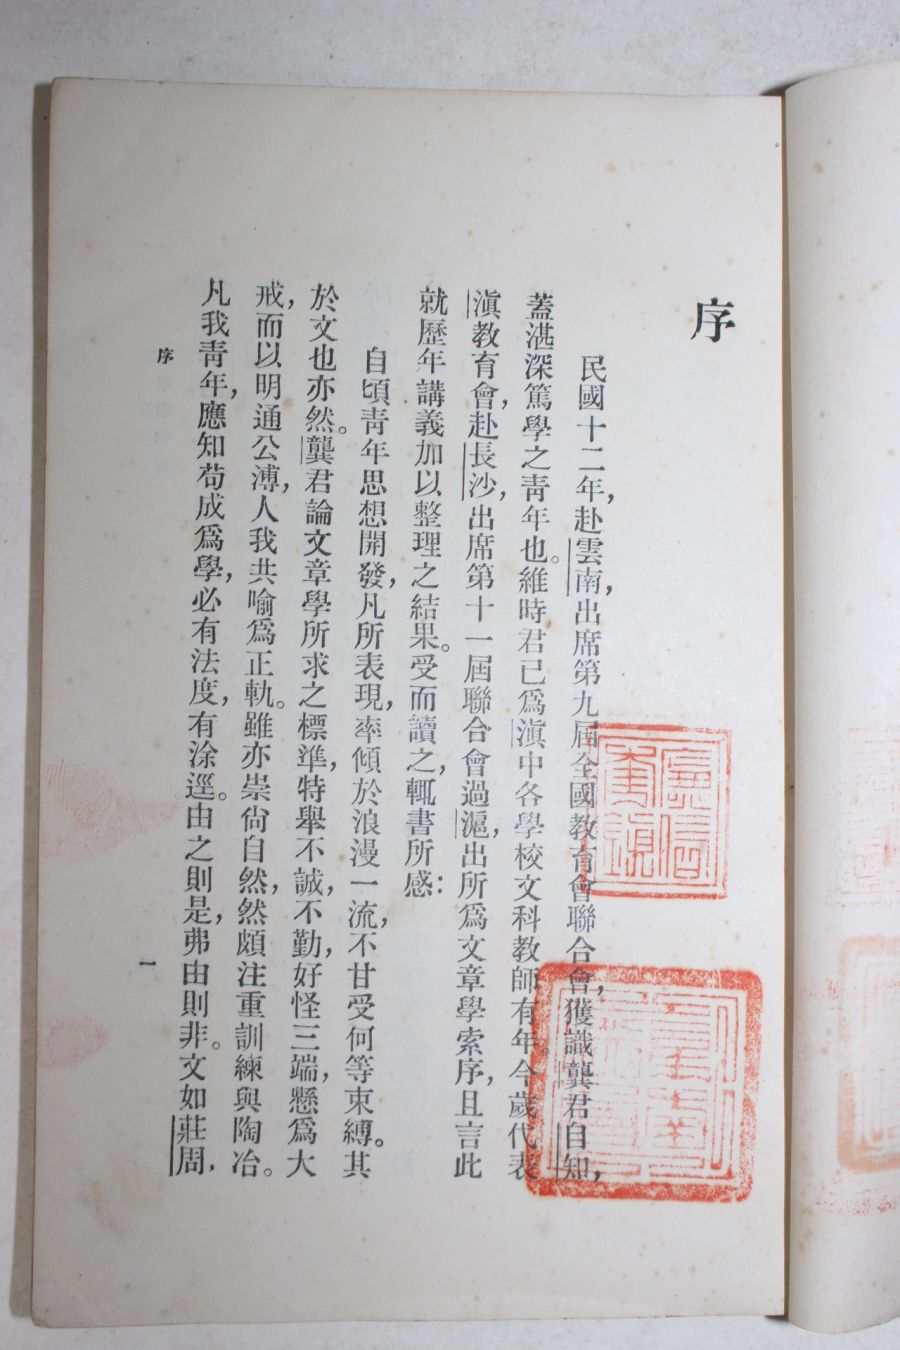 序
民國十二年，赴雲南，出席第九屆全國教育會聯合會，獲識龔君自知，
蓋湛深篤學之靑年也。維時君已爲滇中各學校文科教師有年今歲代表
滇教育會，赴長沙，出席第十一屆聯合會過滬，出所爲文章學索序，且言此
就歷年講義加以整理之結果。受而讀之，輒書所感：
自頃靑年思想開發，凡所表現，率傾於浪漫一流，不甘受何等束縛。其
於文也亦然。龔君論文章學所求之標準，特舉不誠，不勤，好怪三端，懸爲大
戒，而以明通公溥，人我共喻爲正軌。雖亦崇尙自然，然頗注重訓練與陶冶。
凡我靑年，應知苟成爲學，必有法度，有涂逕。由之則是，弗由則非。文如莊周，
序
一